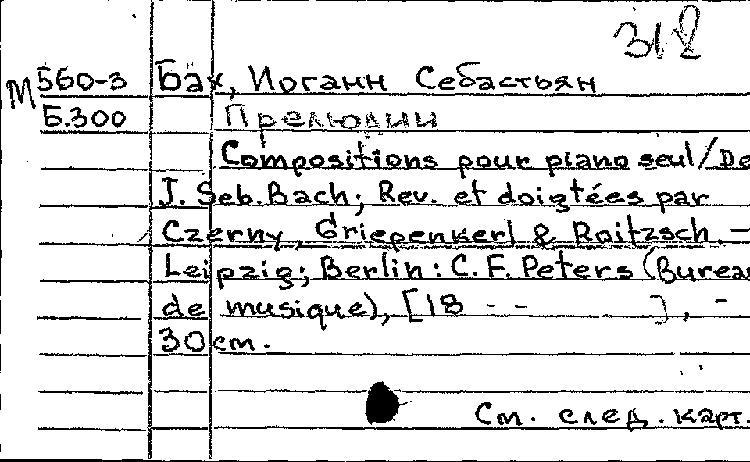 312
М 560-3 Бах, Иоганн Себастьян
Б.300 Прелюдии
Compositions pour piano seul/De
J. Seb. Bach; Rev. et doigtées par
Czerny, Griepenkerl & Roitzsch. –
Leipzig; Berlin: C. F. Peters (Bureau
de musique), [18 - - ], -
30 cm.
См. след. карт.